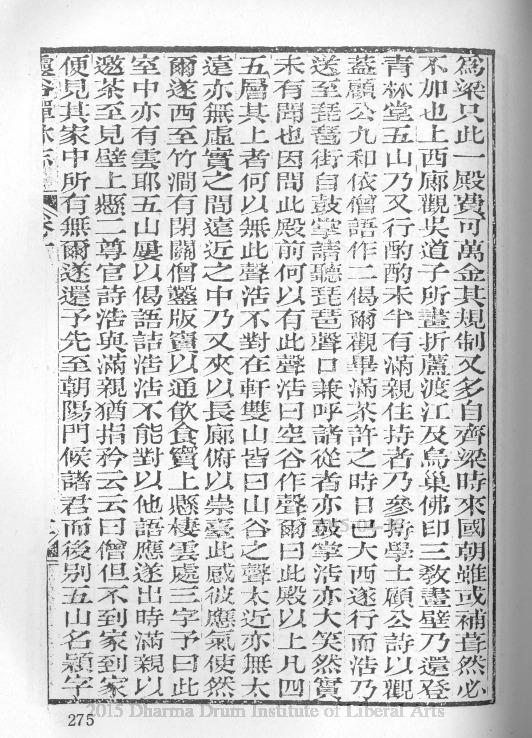 為梁只此一殿費可萬金其規制又多自齊梁時來國朝雖或補葺然必
不加也上西廊觀吳道子所畫折蘆渡江及鳥巢佛印三教畫壁乃還登
青林堂五山乃又行酌酌未半有滿親住持者乃參撕學士顧公詩以觀
蓋顧公九和依僧語作二偈爾觀畢滿茶許之時日已大西遂行而浩乃
送至琵琶街自鼓掌請聽琵琶聲口兼呼諸從者亦鼓掌浩亦大笑然實
未有聞也因問此殿前何以有此聲浩曰空谷作聲爾曰此殿以上凡四
五層其上者何以無此聲浩不對在軒雙山皆曰山谷之聲太近亦無太
遠亦無虛實之間遠近之中乃又夾以長廊俯以崇臺此感彼應氣使然
爾遂西至竹澗有閉關僧鑿版竇以通飲食竇上懸棲雲處三字予曰此
室中亦有雲耶五山屢以偈語詰浩浩不能對以他語應遂出時滿親以
邀茶至見壁上懸二尊官詩浩與滿親猶指矜云云曰僧但不到家到家
便見其家中所有無爾遂還予先至朝陽門候諸君而後別五山名穎字
靈谷禪林志
卷十
275
2015 Dharma Drum Institute of Liberal Arts